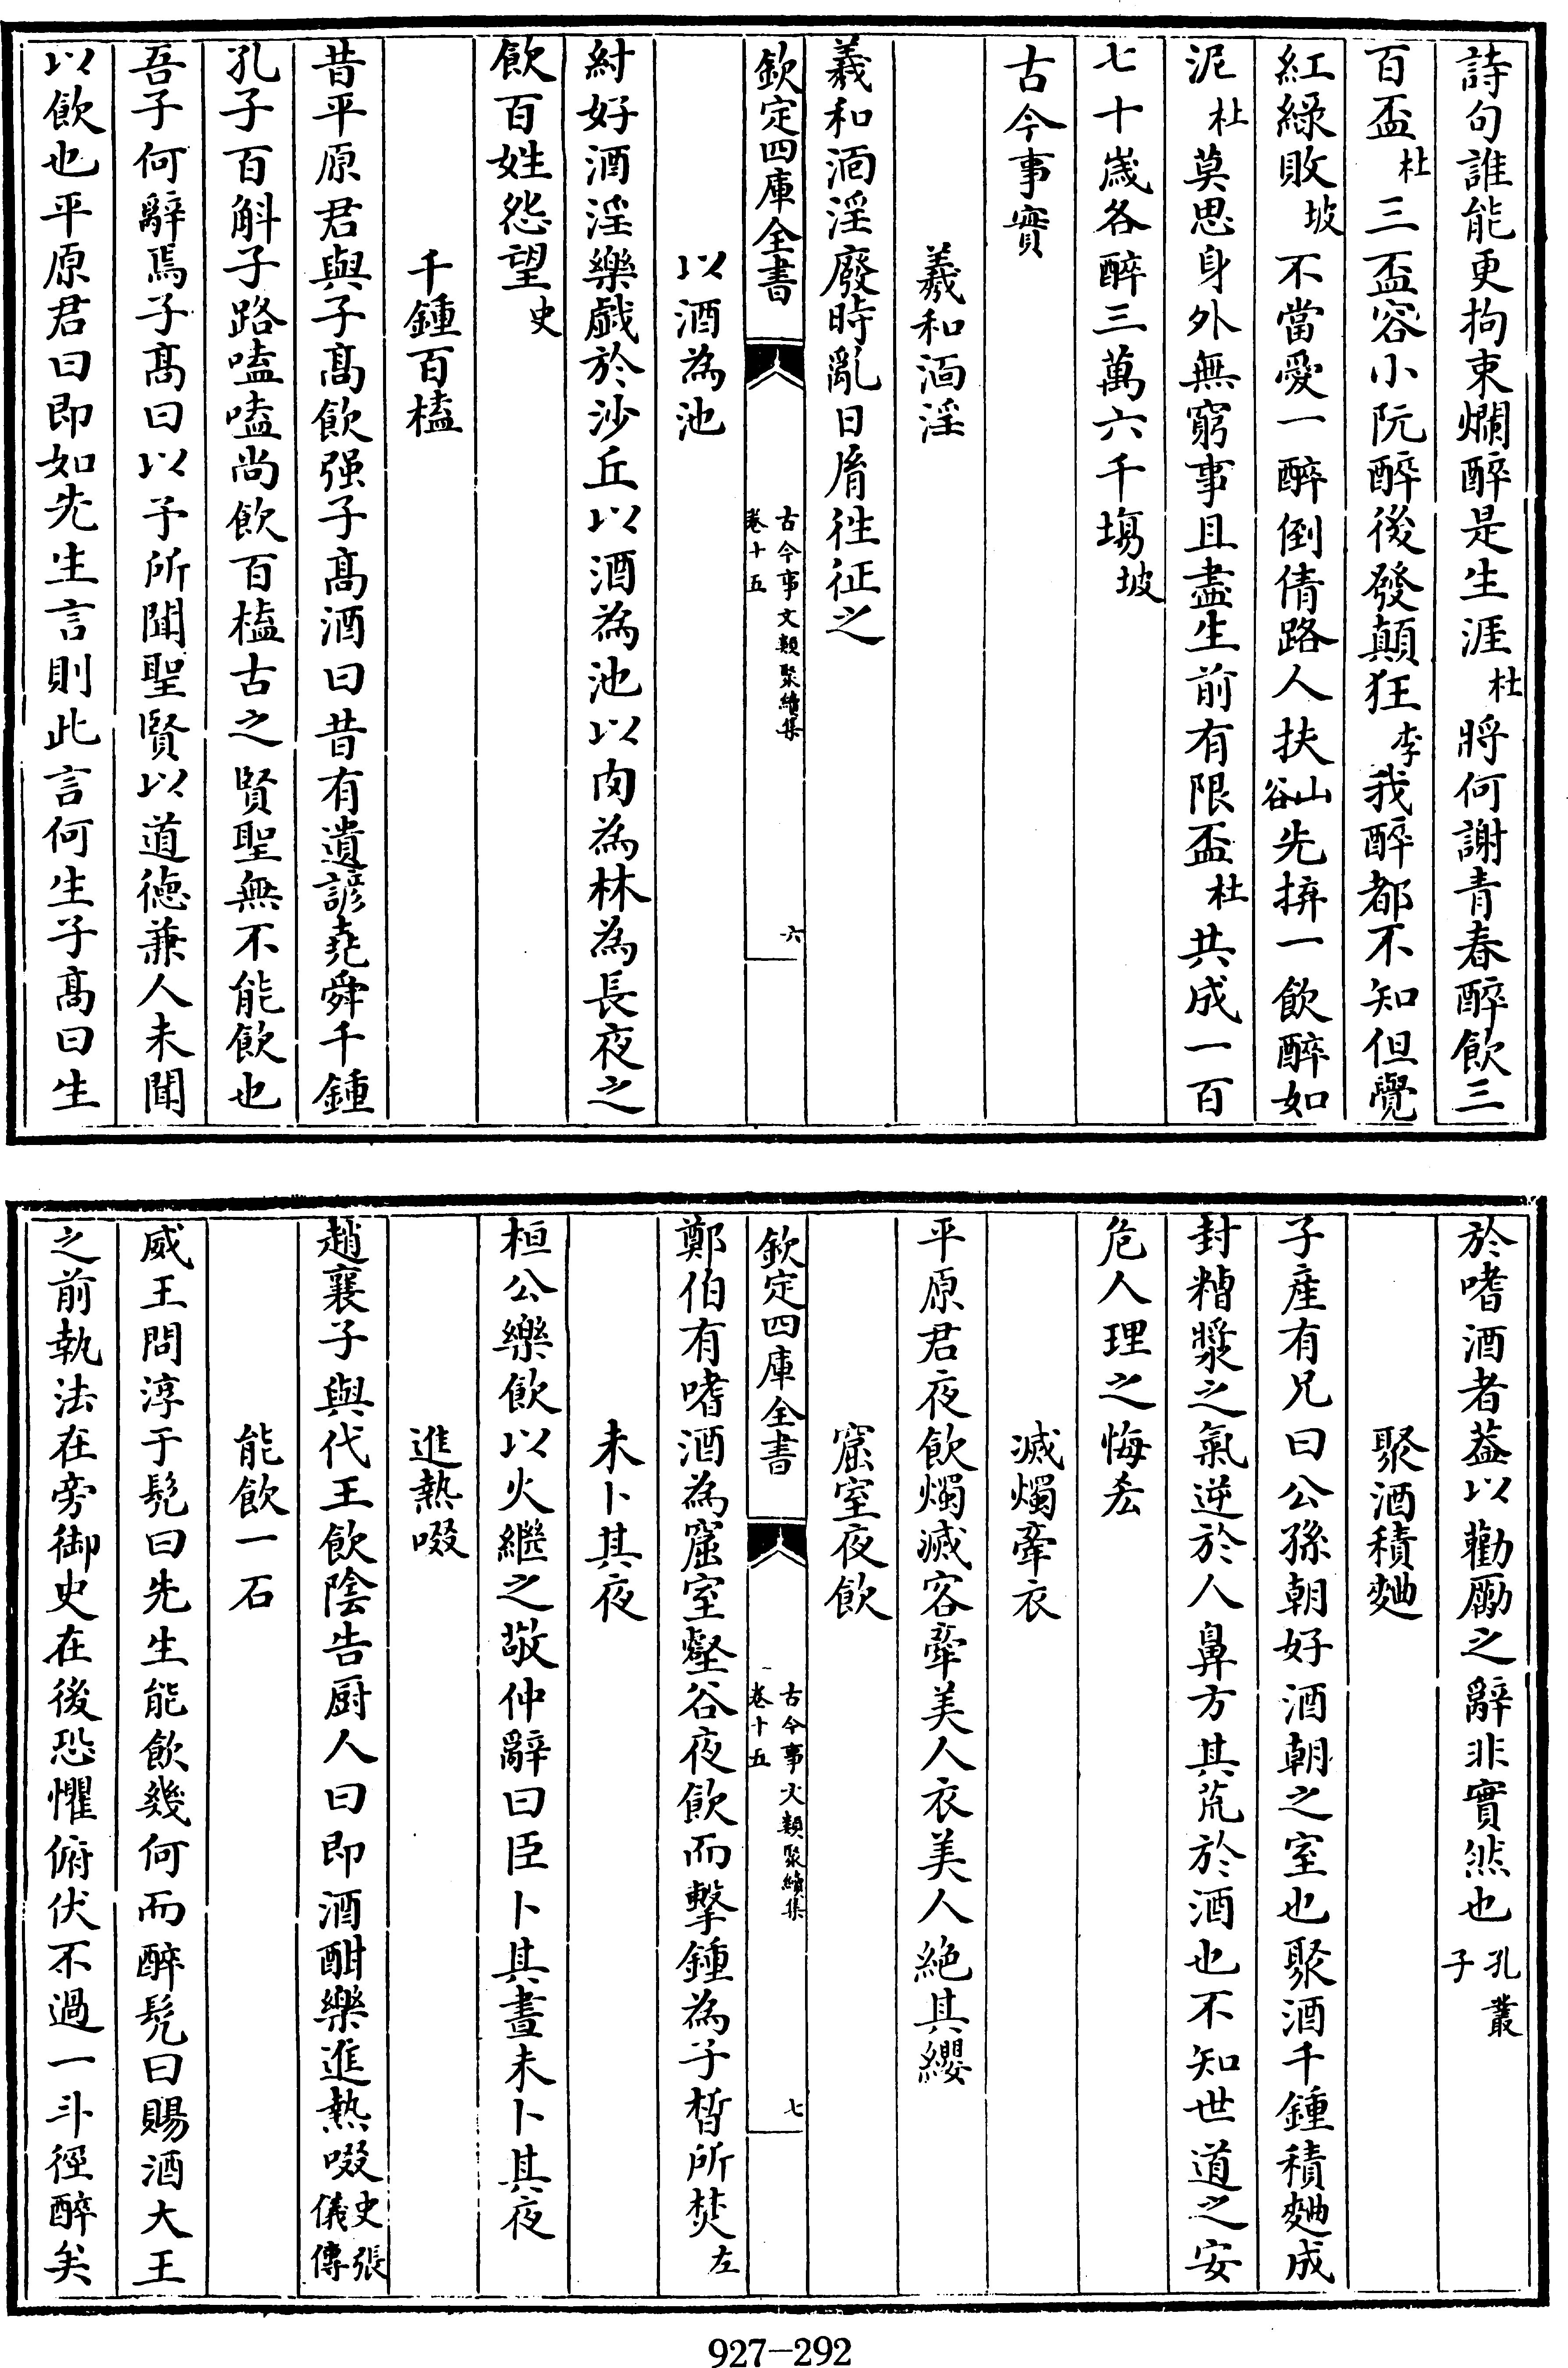 詩句誰能更拘束爛醉是生涯杜將何謝青春醉飲三
百盃杜三盃容小阮醉後發顛狂李我醉都不知但覺
紅綠敗坡不當愛一醉倒倩路人扶山谷先拚一飲醉如
泥杜莫思身外無窮事且盡生前有限盃杜共成一百
七十歲各醉三萬六千塲坡
古今事實
羲和湎淫
羲和湎淫廢時亂日胤徃征之
欽定四庫全書
古今事文類聚續集
卷十五
六
以酒為池
紂好酒淫樂戯於沙丘以酒為池以肉為林為長夜之
飲百姓怨望史
千鍾百榼
昔平原君與子髙飲强子髙酒曰昔有遺諺堯舜千鍾
孔子百斛子路嗑嗑尚飲百榼古之賢聖無不能飲也
吾子何辭焉子髙曰以予所聞聖賢以道德兼人未聞
以飲也平原君曰即如先生言則此言何生子髙曰生
於嗜酒者葢以勸勵之辭非實然也孔叢子
聚酒積麯
子産有兄曰公孫朝好酒朝之室也聚酒千鍾積麯成
封糟漿之氣逆於人鼻方其荒於酒也不知世道之安
危人理之悔吝
滅燭牽衣
平原君夜飲燭滅客牽美人衣美人絶其纓
窟室夜飲
欽定四庫全書
古今事文類聚續集
卷十五
七
鄭伯有嗜酒為窟室壑谷夜飲而擊鍾為子晳所焚左
未卜其夜
桓公樂飲以火繼之敬仲辭曰臣卜其晝未卜其夜
進熱啜
趙襄子與代王飲陰告厨人曰即酒酣樂進熱啜史張儀傳
能飲一石
威王問淳于髠曰先生能飲幾何而醉髠曰賜酒大王
之前執法在旁御史在後恐懼俯伏不過一斗徑醉矣
927-292